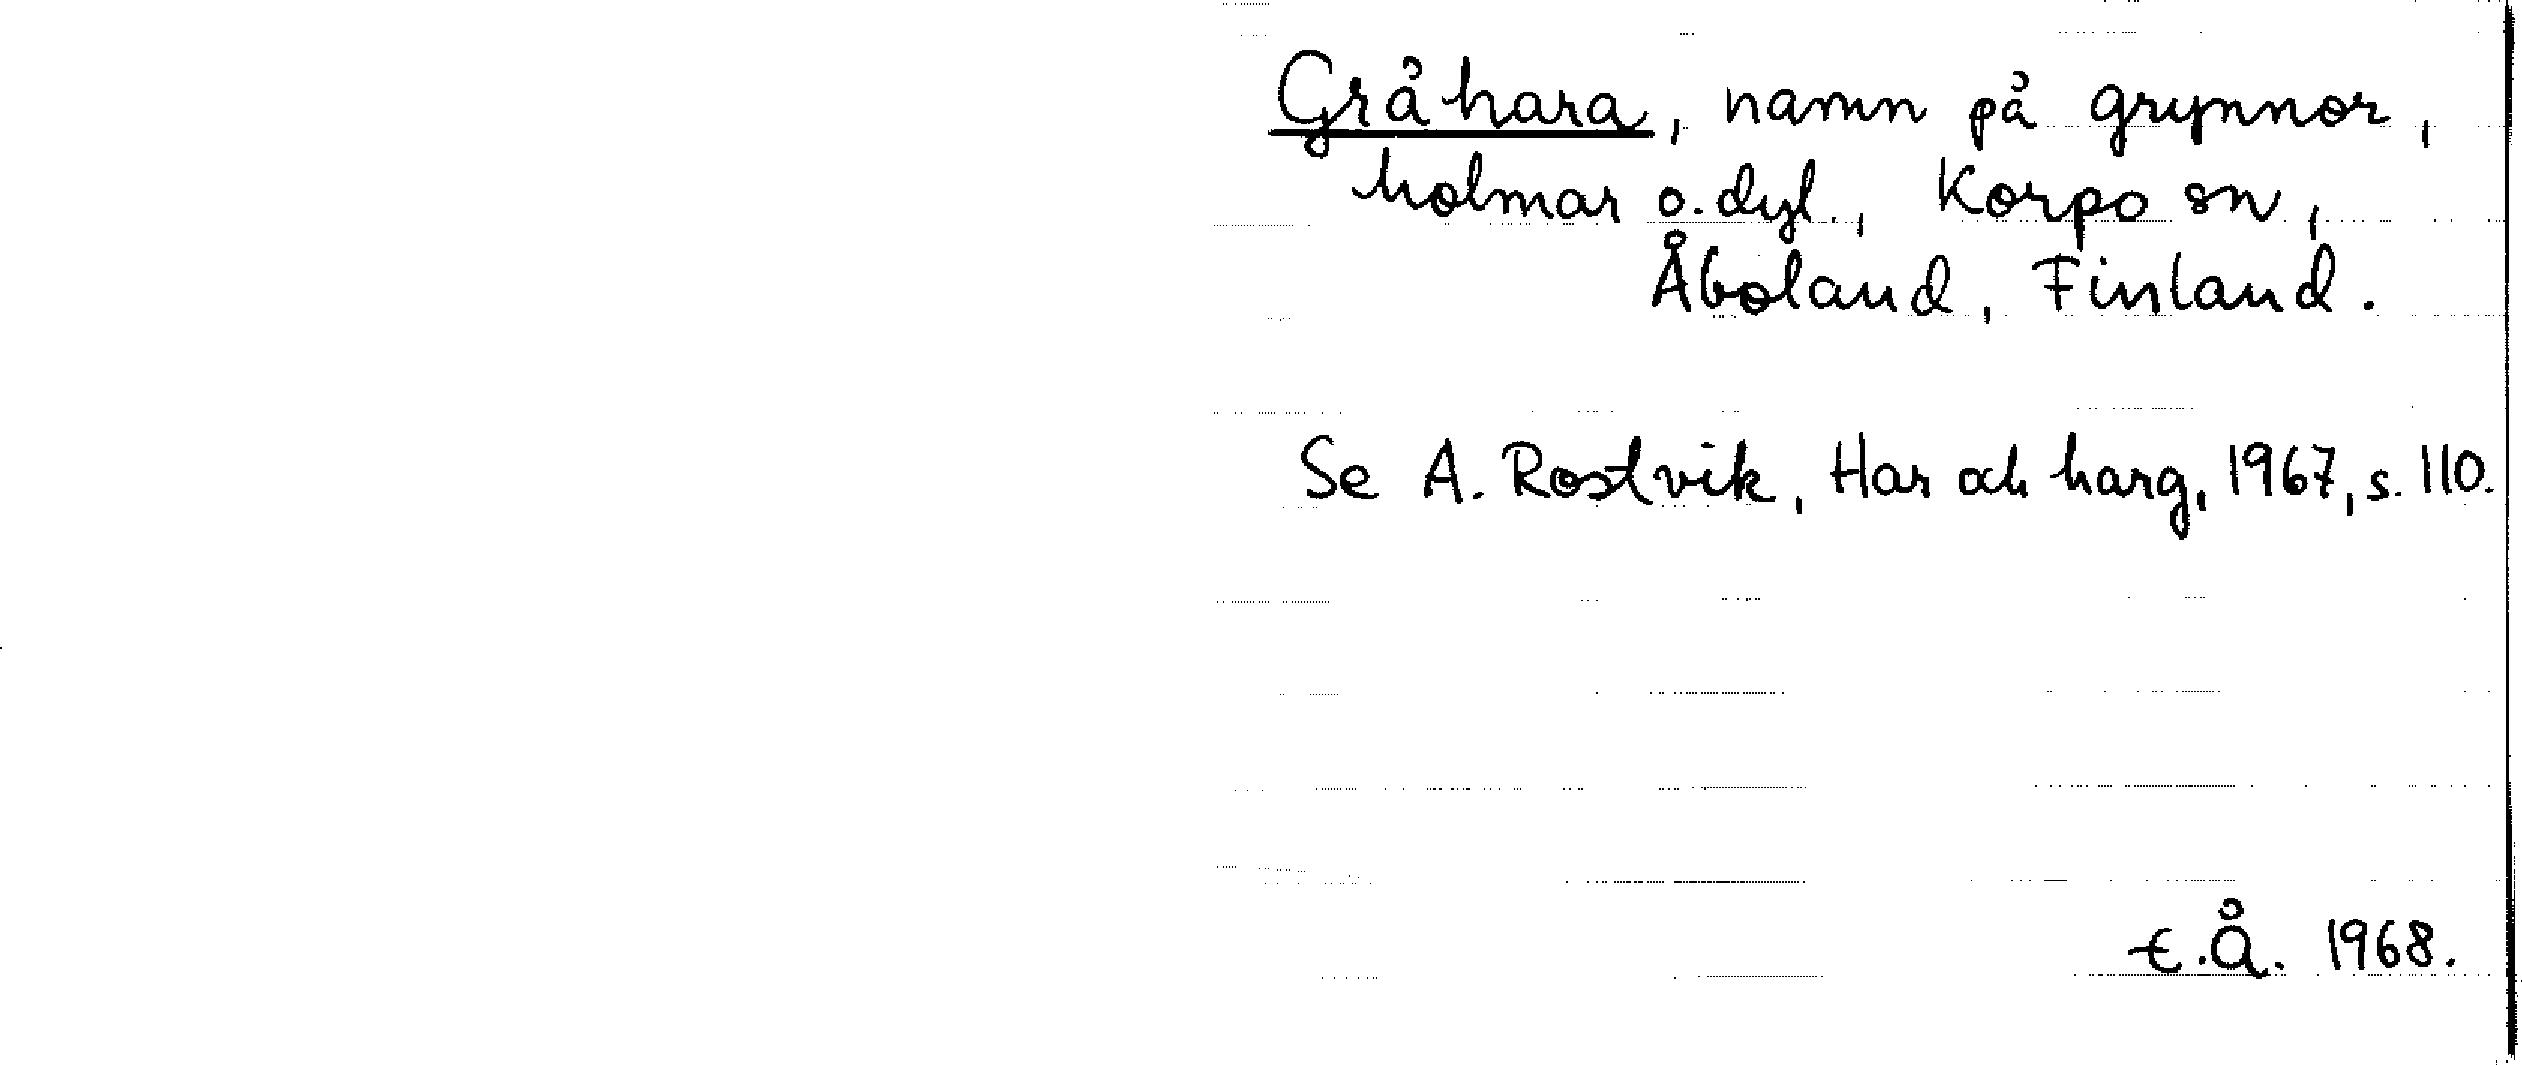 Gråhara, namn på grynnor,
holmar o. dyl., Korpo sn,
Åboland, Finland.
Se A. Rostvik, Har och harg, 1967, s. 110.
E.Å. 1968.